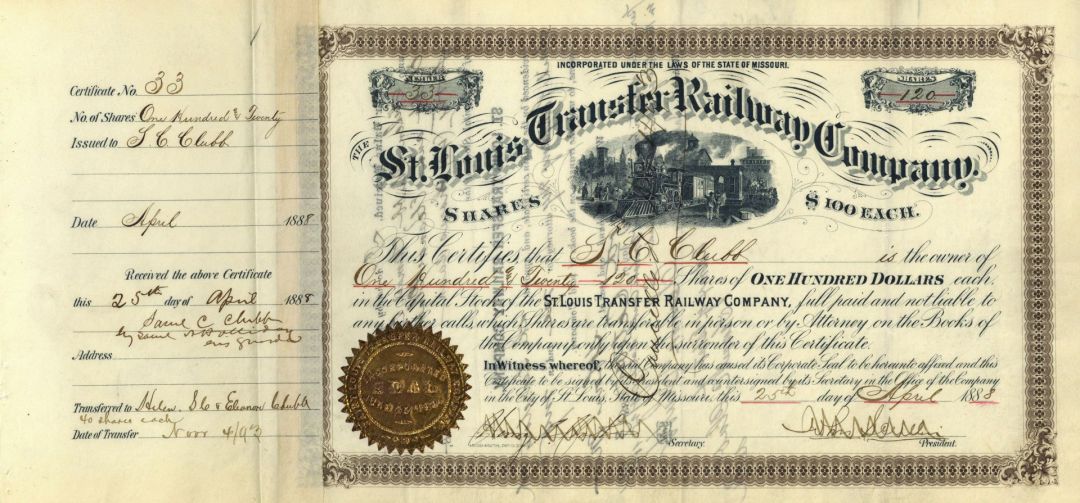 Certificate No. 33
No. of Shares One Hundred & Twenty
Issued to S. C. Clubb
Date April 1888
Received the above Certificate
this 25th day of April 1888
Saml C. Clubb
by Saml
Address
Transferred to Helen, S C & Eleanor Clubb
40 shares each
Date of Transfer Novr 4/93
INCORPORATED UNDER THE LAWS OF THE STATE OF MISSOURI.
NUMBER
33
SHARES
120
THE
St. Louis Transfer Railway Company.
SHARES $100 EACH.
This Certifies that S. C. Clubb is the owner of
One Hundred & Twenty —120— Shares of ONE HUNDRED DOLLARS each
in the Capital Stock of the ST. LOUIS TRANSFER RAILWAY COMPANY, full paid and not liable to
any further calls, which Shares are transferable in person or by Attorney on the Books of
the Company only upon the surrender of this Certificate.
In Witness whereof, the said Company has caused its Corporate Seal to be hereunto affixed and this
Certificate to be signed by its President and countersigned by its Secretary at the Office of the Company
in the City of St. Louis, State of Missouri, this 25th day of April 1888
Secretary.
President.
Cancelled
CORPORATE
SEAL